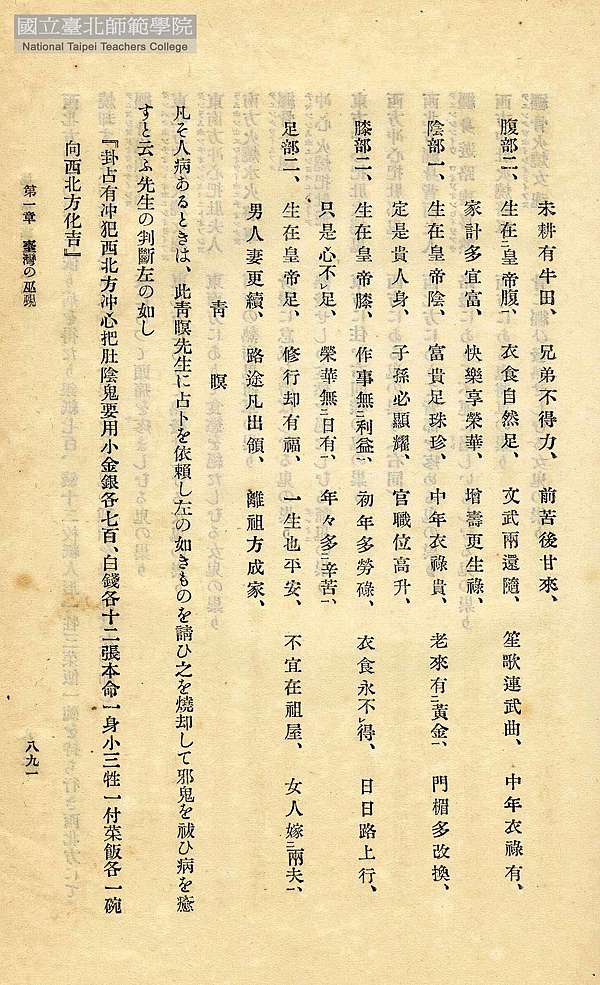 國立臺北師範學院
National Taipei Teachers College
未耕有牛田、兄弟不得力、前苦後甘來、
腹部二、生在二皇帝腹一、衣食自然足、文武兩還隨、笙歌連武曲、中年衣祿有、
家計多宜富、快樂享榮華、增壽更生祿、
陰部一、生在皇帝陰、富貴足珠珍、中年衣祿貴、老來有二黃金一、門楣多改換、
定是貴人身、子孫必顯耀、官職位高升、
膝部二、生在皇帝膝、作事無二利益一、初年多勞碌、衣食永不レ得、日日路上行、
只是心不レ足、榮華無二日有一、年々多二辛苦一、
足部二、生在皇帝足、修行却有福、一生也平安、不宜在祖屋、女人嫁二兩夫一、
男人妻更續、路途凡出領、離祖方成家、
靑瞑
凡そ人病あるときは、此靑瞑先生に占卜を依賴し左の如きものを請ひ之を燒却して邪鬼を祓ひ病を癒
すと云ふ先生の判斷左の如し
『卦占有沖犯西北方沖心把肚陰鬼要用小金銀各七百、白錢各十二張本命一身小三牲一付菜飯各一碗
向西北方化吉』
第一章　臺灣の巫覡
八九一